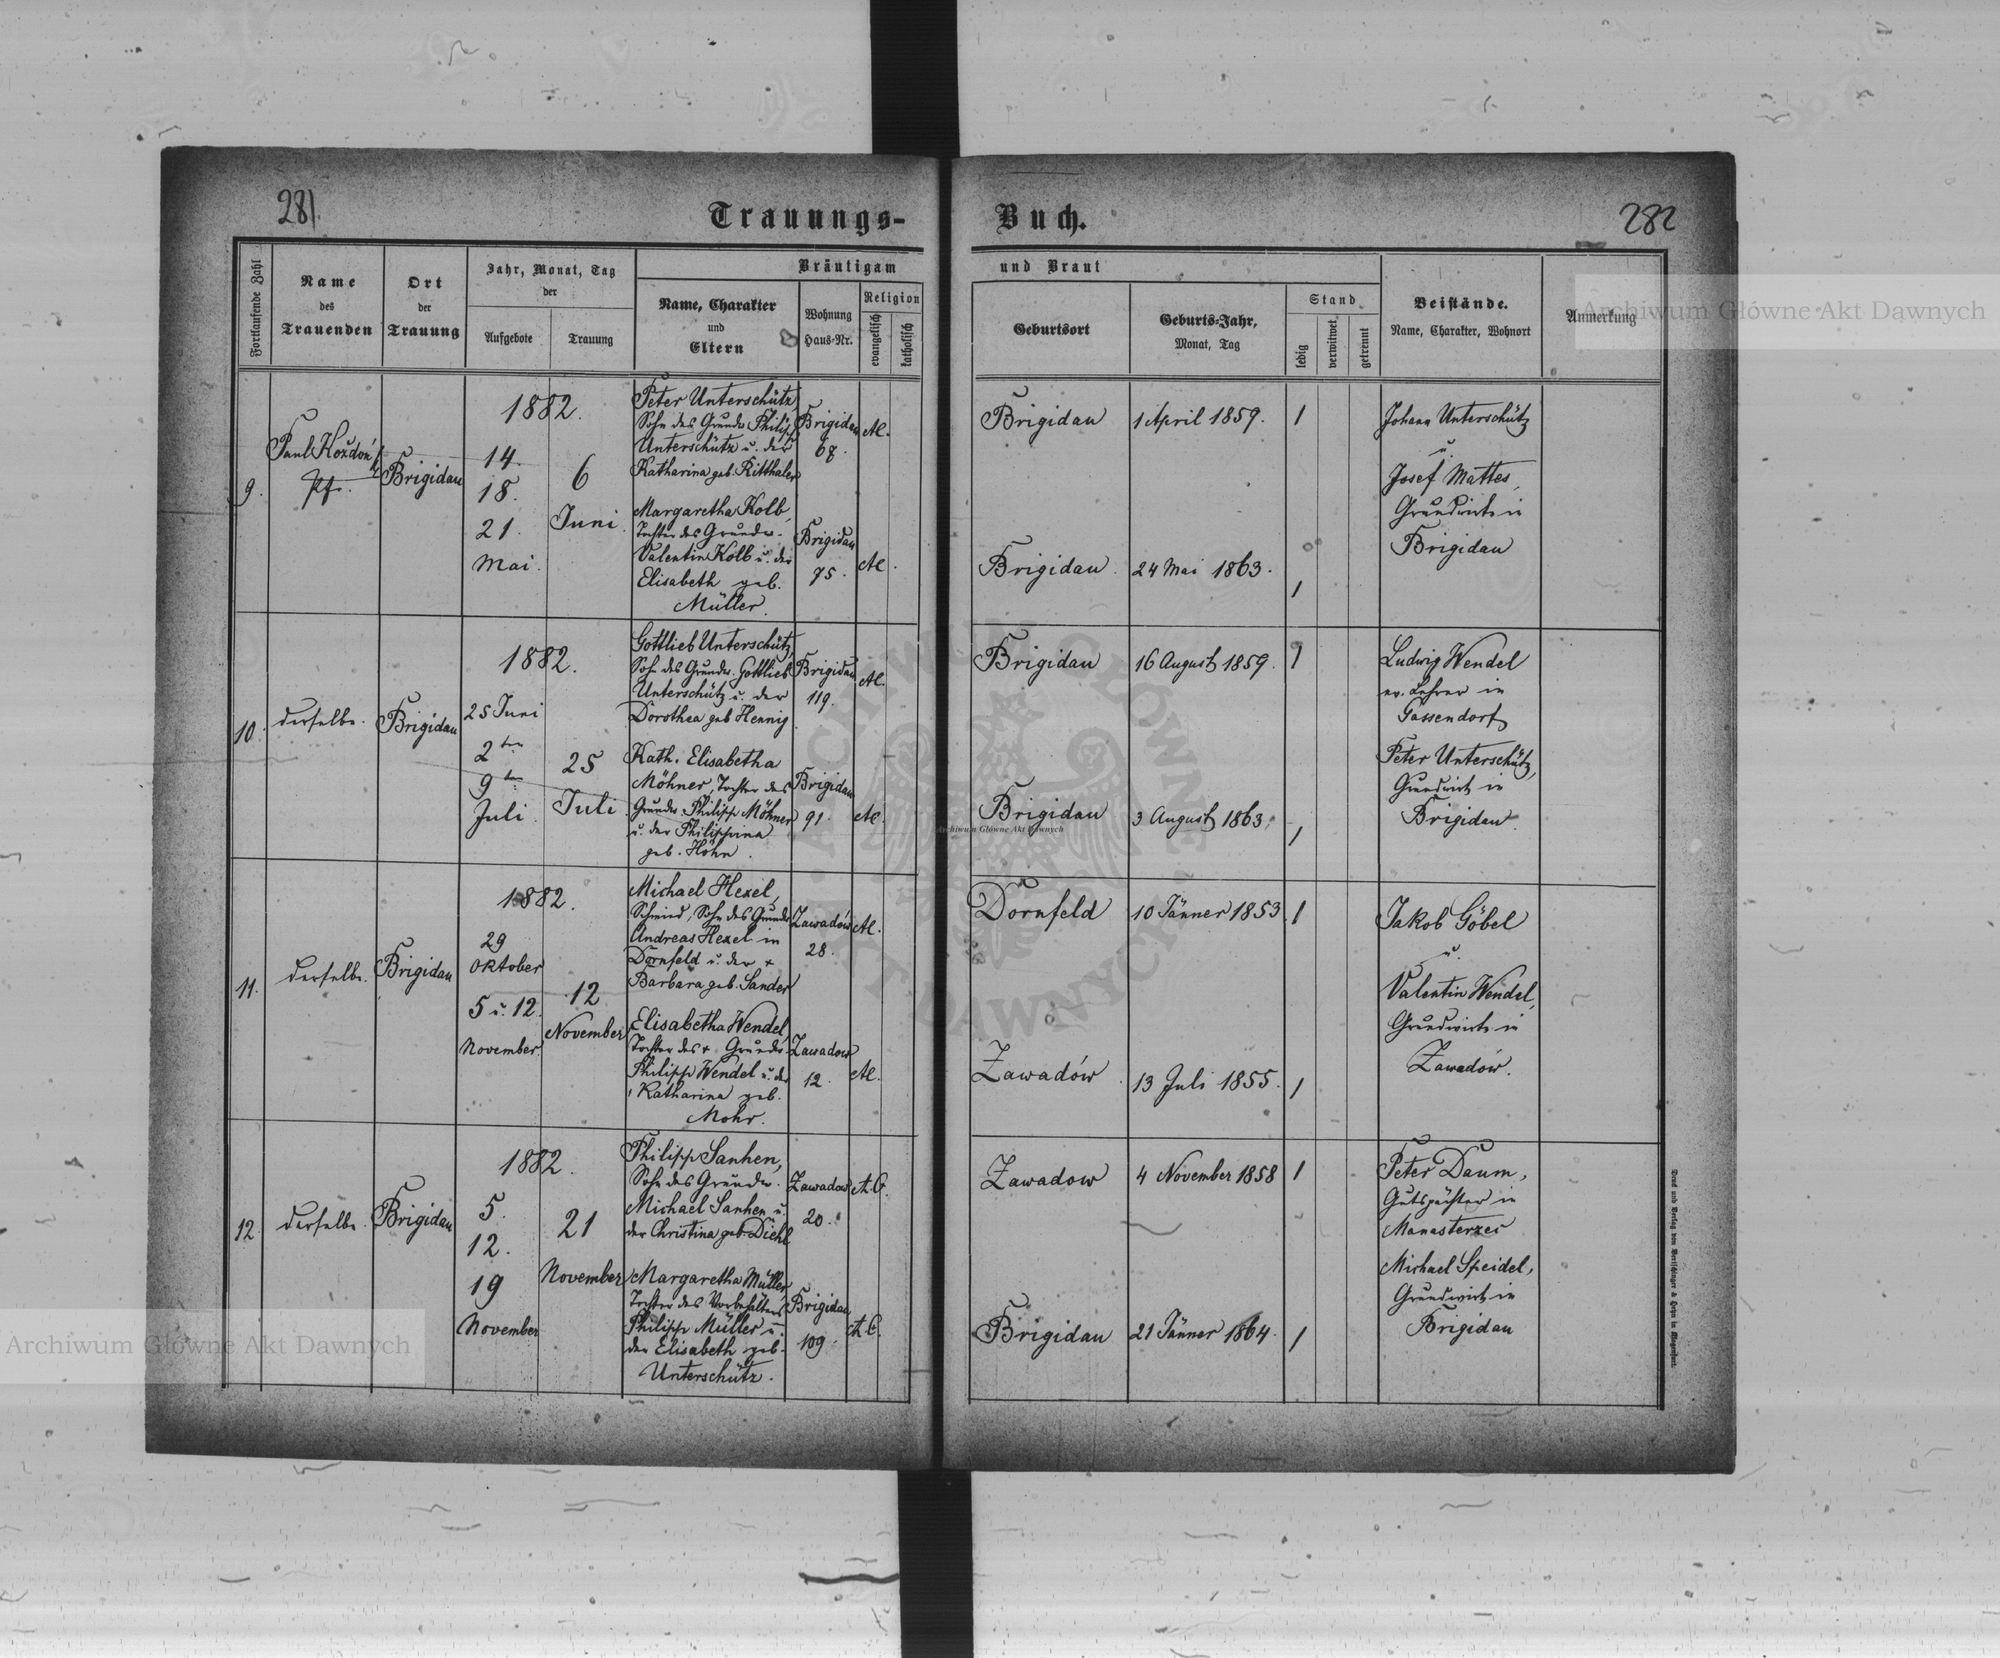 281.
282
Trauungs-
Buch.
Fortlaufende Zahl
Name
des
Trauenden
Ort
der
Trauung
Jahr, Monat, Tag
der
Aufgebote
Trauung
Bräutigam
Name, Charakter
und
Eltern
Wohnung
Haus-Nr.
Religion
evangelisch
katholisch
und Braut
Geburtsort
Geburts-Jahr,
Monat, Tag
Stand
ledig
verwitwet
getrennt
Beistände.
Name, Charakter, Wohnort
Anmerkung
9.
Paul Kozdoń
Pfr.
Brigidau
1882.
14.
18.
21.
Mai.
6
Juni.
Peter Unterschütz,
Sohn des Grundw. Philipp
Unterschütz u. der
Katharina geb. Ritthaler
Brigidau
68.
A.
Margaretha Kolb,
Tochter des Grundw.
Valentin Kolb u. der
Elisabeth geb.
Müller.
Brigidau
75.
A.
Brigidau
1 April 1859.
1
Brigidau
24 Mai 1863.
1
Johann Unterschütz
u.
Josef Mattes,
Grundwirte in
Brigidau
10.
derselbe.
Brigidau
1882.
25 Juni
2ten
9ten
Juli.
25
Juli.
Gottlieb Unterschütz,
Sohn des Grundw. Gottlieb
Unterschütz u. der
Dorothea geb Hennig
Brigidau
119.
A.
Kath. Elisabetha
Möhner, Tochter des
Grundw. Philipp Möhner
u. der Philippina
geb. Höhn.
Brigidau
91.
A.
Brigidau
16 August 1859.
1
Brigidau
3 August 1863.
1
Ludwig Wendel
ev. Lehrer in
Gassendorf
Peter Unterschütz,
Grundwirt in
Brigidau.
11.
derselbe.
Brigidau
1882.
29
Oktober
5 u. 12.
November
12
November
Michael Hexel,
Schmied, Sohn des Grundw
Andreas Hexel in
Dornfeld u. der +
Barbara geb. Sander
Zawadów
28.
A.
Elisabetha Wendel,
Tochter des + Grundw
Philipp Wendel u. der
Katharina geb.
Mohr.
Zawadow
12.
A.
Dornfeld
10 Jänner 1853.
1
Zawadów
13 Juli 1855.
1
Jakob Göbel
u.
Valentin Wendel,
Grundwirte in
Zawadów.
12.
derselbe.
Brigidau
1882.
5.
12.
19
November
21
November
Philipp Sanhen,
Sohn des Grundw.
Michael Sanhen u.
der Christina geb. Diehl
Zawadow
20.
A.C.
Margaretha Müller,
Tochter des Vorbehälters
Philipp Müller u.
der Elisabeth geb.
Unterschütz.
Brigidau
109.
A.C.
Zawadow
4 November 1858
1
Brigidau
21 Jänner 1864.
1
Peter Daum,
Gutspächter in
Manasterzec
Michael Speidel,
Grundwirt in
Brigidau
Archiwum Główne Akt Dawnych
Archiwum Główne Akt Dawnych
Archiwum Główne Akt Dawnych